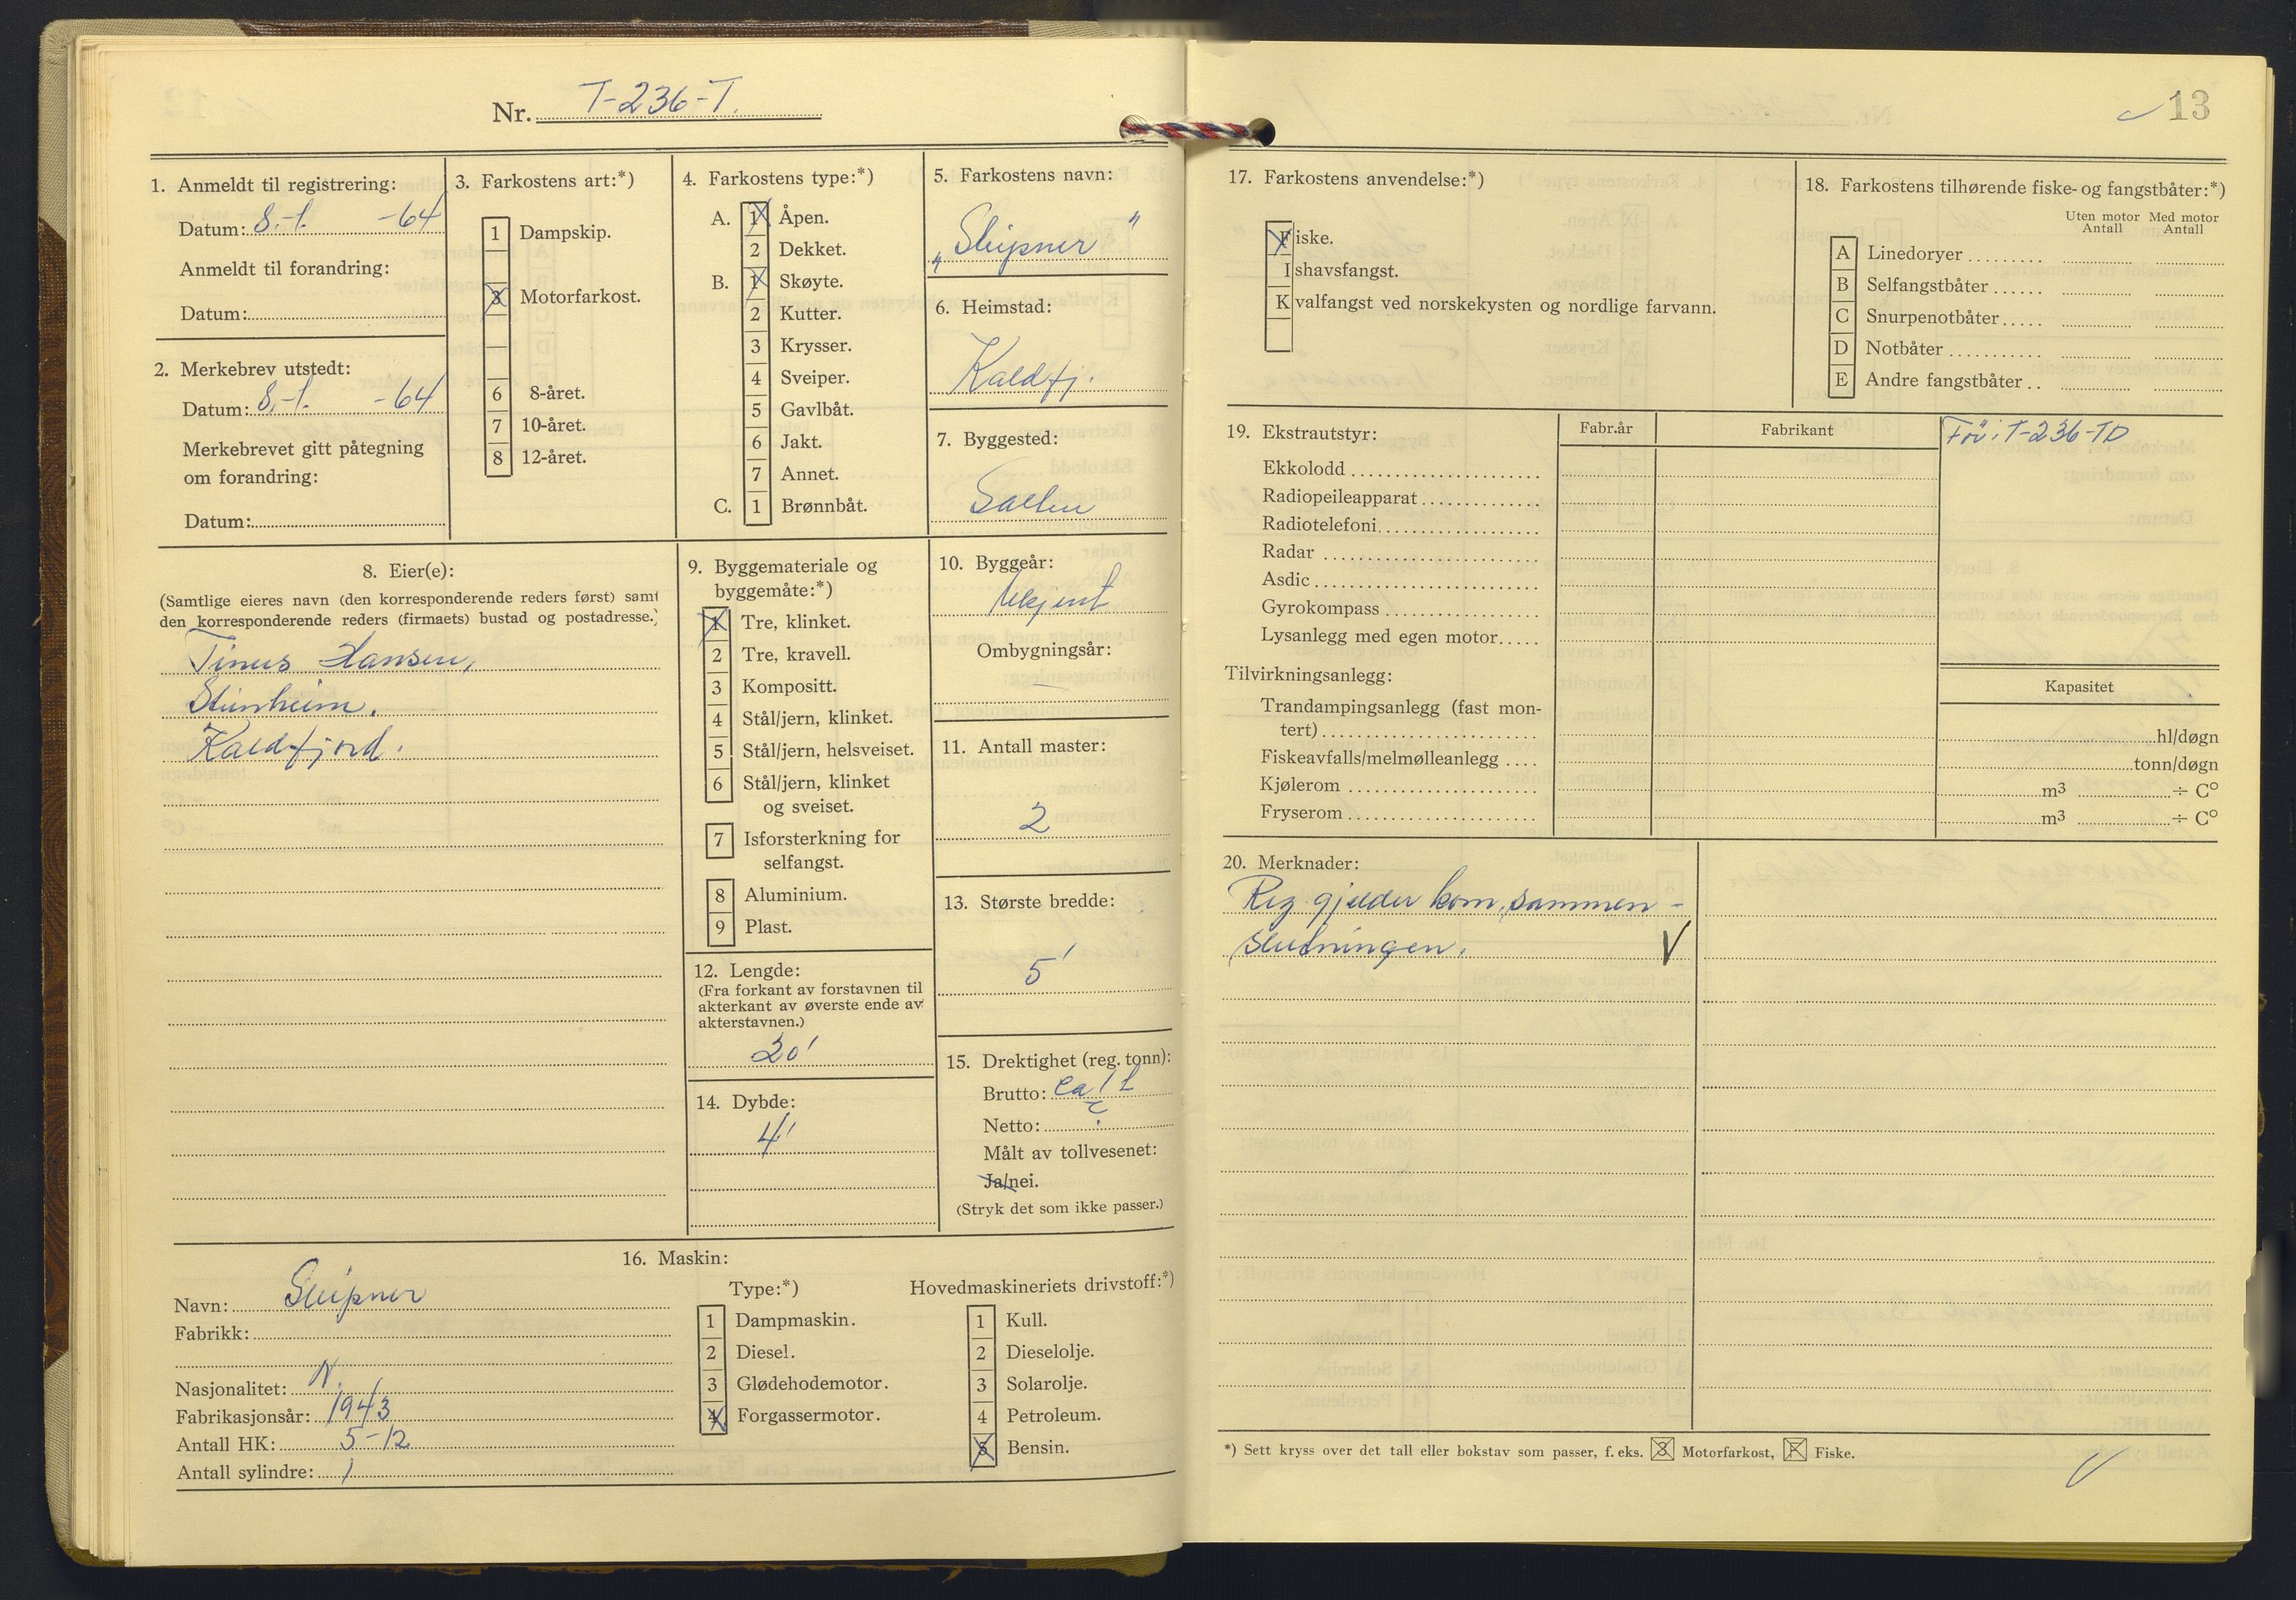 Nr. T-236-T.
1. Anmeldt til registrering:
Datum: 8.-1. -64
Anmeldt til forandring:
Datum:
2. Merkebrev utstedt:
Datum: 8.-1. -64
Merkebrevet gitt påtegning
om forandring:
Datum:
3. Farkostens art:*)
1 Dampskip.
3 Motorfarkost.
6 8-året.
7 10-året.
8 12-året.
4. Farkostens type:*)
A. 1 Åpen.
2 Dekket.
B. 1 Skøyte.
2 Kutter.
3 Krysser.
4 Sveiper.
5 Gavlbåt.
6 Jakt.
7 Annet.
C. 1 Brønnbåt.
5. Farkostens navn:
„Sleipner"
6. Heimstad:
Kaldfj.
7. Byggested:
Salten
8. Eier(e):
(Samtlige eieres navn (den korresponderende reders først) samt
den korresponderende reders (firmaets) bustad og postadresse.)
Tinus Hansen,
Kaldfjord.
9. Byggemateriale og
byggemåte:*)
1 Tre, klinket.
2 Tre, kravell.
3 Kompositt.
4 Stål/jern, klinket.
5 Stål/jern, helsveiset.
6 Stål/jern, klinket
og sveiset.
7 Isforsterkning for
selfangst.
8 Aluminium.
9 Plast.
10. Byggeår:
Ukjent
Ombygningsår:
11. Antall master:
2
12. Lengde:
(Fra forkant av forstavnen til
akterkant av øverste ende av
akterstavnen.)
20'
13. Største bredde:
5'
14. Dybde:
4'
15. Drektighet (reg. tonn):
Brutto: ca 1 t
Netto:
Målt av tollvesenet:
Ja/nei.
(Stryk det som ikke passer.)
16. Maskin:
Navn: Sleipner
Fabrikk:
Nasjonalitet: N.
Fabrikasjonsår: 1943
Antall HK: 5-12
Antall sylindre: 1
Type:*)
1 Dampmaskin.
2 Diesel.
3 Glødehodemotor.
4 Forgassermotor.
Hovedmaskineriets drivstoff:*)
1 Kull.
2 Dieselolje.
3 Solarolje.
4 Petroleum.
5 Bensin.
13
17. Farkostens anvendelse:*)
Fiske.
Ishavsfangst.
Kvalfangst ved norskekysten og nordlige farvann.
18. Farkostens tilhørende fiske- og fangstbåter:*)
Uten motor Med motor
Antall Antall
A Linedoryer
B Selfangstbåter
C Snurpenotbåter
D Notbåter
E Andre fangstbåter
19. Ekstrautstyr: Fabr.år Fabrikant
Før: T-236-TD
Ekkolodd
Radiopeileapparat
Radiotelefoni
Radar
Asdic
Gyrokompass
Lysanlegg med egen motor
Tilvirkningsanlegg: Kapasitet
Trandampingsanlegg (fast mon-
tert) hl/døgn
Fiskeavfalls/melmølleanlegg tonn/døgn
Kjølerom m³ ÷ C°
Fryserom m³ ÷ C°
20. Merknader:
Reg gjelder kom. sammen-
slutningen.
*) Sett kryss over det tall eller bokstav som passer, f. eks. 3 Motorfarkost, F Fiske.